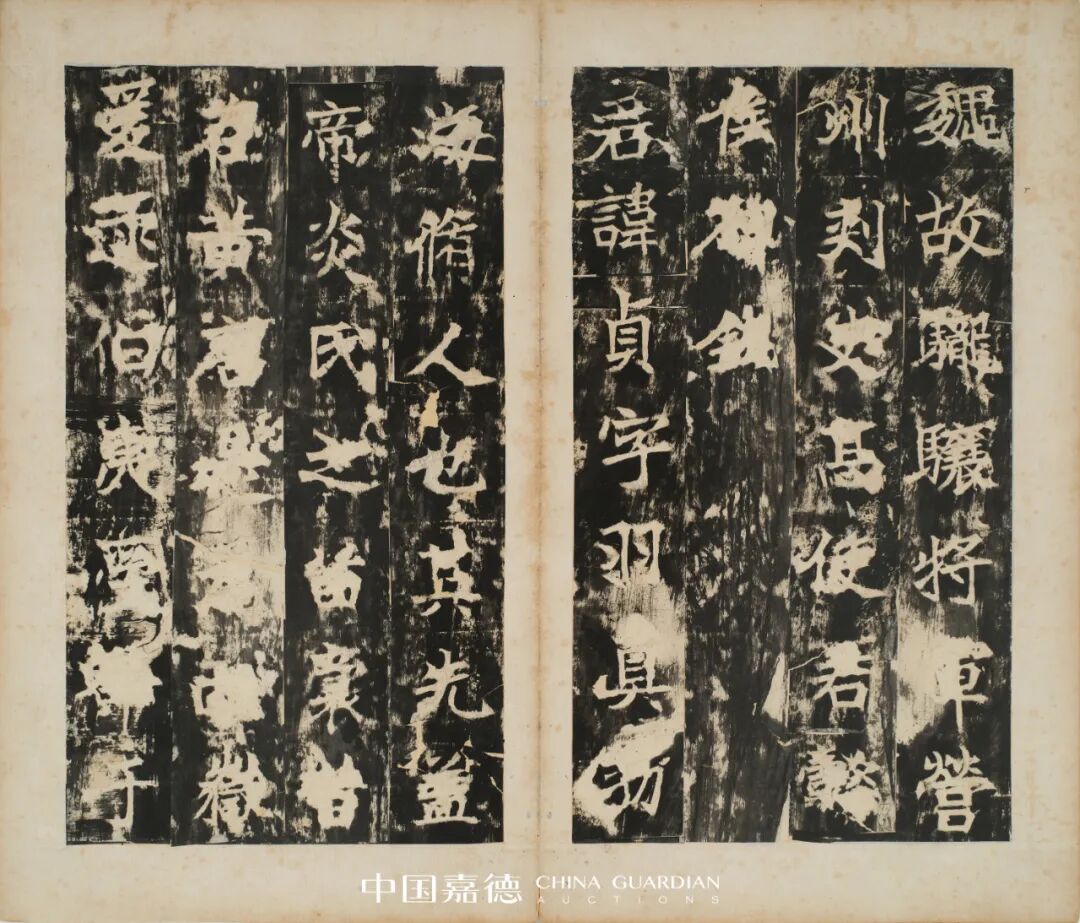 魏故龍驤將軍營
州刾史高使君懿
侯碑銘
君諱貞字羽真勃
海脩人也其先盖
帝炎氏之苗裔昔
黄
爰伯夷于
中国嘉德 CHINA GUARDIAN AUCTIONS